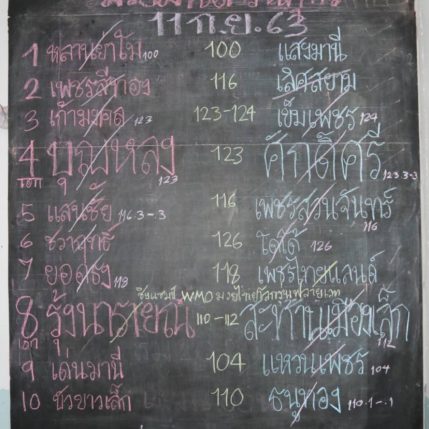 11 ก.ย. 63
1 หลานยาโม 100 100 แสงมานี
2 เพชรสีทอง 116 เลิศสยาม
3 เก้ามงคล 123 123-124 เข็มเพชร 124
4 บุญหลง 123 123 ศักดิ์ศรี 123.3-.3
เอก
5 แสนชัย 116.3-.3 116 เพชรสวนจันทร์ 116
6 ชวาฤทธิ์ 126 โตโต้ 126
7 118 118 เพชรไทยแลนด์
ชิงแชมป์ WMO
8 รุ้งนารายณ์ 110-112 สะท้านเมืองเล็ก 112
9 เด่นมานี 104 แหวนเพชร 104
10 ชัวบาวเล็ก 110 ธนูทอง 110.1-.1